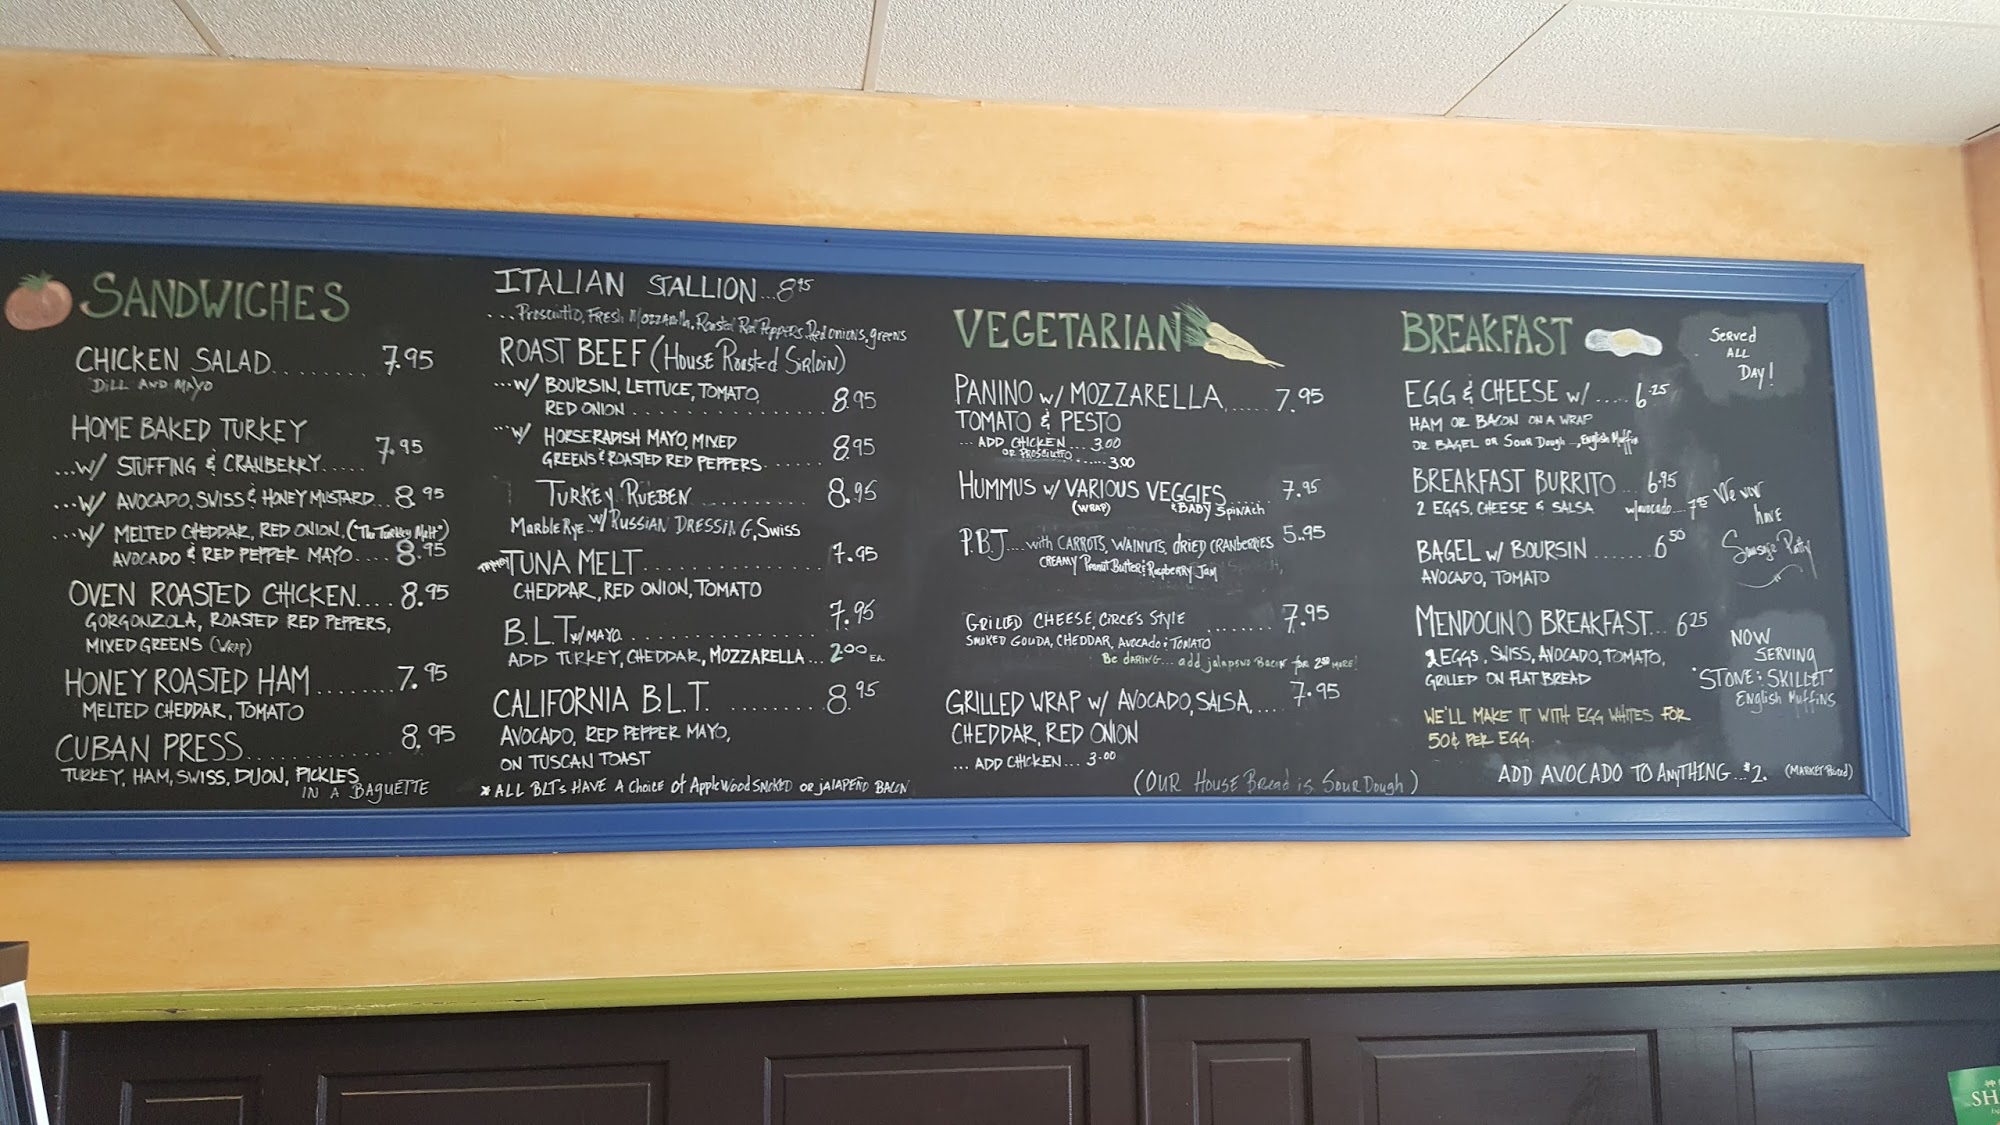 SANDWICHES
CHICKEN SALAD........ 7.95
DILL AND MAYO
HOME BAKED TURKEY
...W/ STUFFING & CRANBERRY..... 7.95
...W/ AVOCADO, SWISS & HONEY MUSTARD... 8.95
...W/ MELTED CHEDDAR, RED ONION, ("The Turkey Melt")
AVOCADO & RED PEPPER MAYO.... 8.95
OVEN ROASTED CHICKEN.... 8.95
GORGONZOLA, ROASTED RED PEPPERS,
MIXED GREENS (WRAP)
HONEY ROASTED HAM........ 7.95
MELTED CHEDDAR, TOMATO
CUBAN PRESS............ 8.95
TURKEY, HAM, SWISS, DIJON, PICKLES
IN A BAGUETTE
ITALIAN STALLION...8.95
...Prosciutto, FRESH Mozzarella, Roasted Red Peppers, Red onions, greens
ROAST BEEF (HOUSE ROASTED SIRLOIN)
...W/ BOURSIN, LETTUCE, TOMATO,
RED ONION.............. 8.95
...W/ HORSERADISH MAYO, MIXED
GREENS & ROASTED RED PEPPERS...... 8.95
TURKEY RUEBEN.......... 8.95
Marble Rye W/ RUSSIAN DRESSING, SWISS
TUNA MELT................ 7.95
CHEDDAR, RED ONION, TOMATO
B.L.T. W/ MAYO............... 7.95
ADD TURKEY, CHEDDAR, MOZZARELLA... 2.00 EA.
CALIFORNIA B.L.T. ......... 8.95
AVOCADO, RED PEPPER MAYO,
ON TUSCAN TOAST
* ALL BLTS HAVE A CHOICE OF AppleWood SMOKED OR JALAPEÑO BACON
VEGETARIAN
PANINO W/ MOZZARELLA...... 7.95
TOMATO & PESTO
... ADD CHICKEN... 3.00
OR PROSCIUTTO...... 3.00
HUMMUS W/ VARIOUS VEGGIES..... 7.95
(WRAP) & BABY SPINACH
P.B.J.... with CARROTS, WALNUTS, DRIED CRANBERRIES 5.95
CREAMY Peanut Butter & Raspberry Jam
GRILLED CHEESE, CIRCE'S STYLE ......... 7.95
SMOKED GOUDA, CHEDDAR, AVOCADO & TOMATO
Be daring... add jalapeno Bacon for 2.50 MORE!
GRILLED WRAP W/ AVOCADO, SALSA,.... 7.95
CHEDDAR, RED ONION
... ADD CHICKEN... 3.00
(OUR HOUSE Bread is SOUR Dough)
BREAKFAST
Served
ALL
DAY!
EGG & CHEESE W/ .... 6.25
HAM OR BACON ON A WRAP
OR BAGEL OR SOUR DOUGH, English Muffin
BREAKFAST BURRITO... 6.95
2 EGGS, CHEESE & SALSA w/avocado... 7.95
We now
have
Sausage Patty
BAGEL W/ BOURSIN ....... 6.50
AVOCADO, TOMATO
MENDOCINO BREAKFAST... 6.25
2 EGGS, SWISS, AVOCADO, TOMATO,
GRILLED ON FLAT BREAD
NOW
SERVING
"STONE & SKILLET"
English Muffins
WE'LL MAKE IT WITH EGG WHITES FOR
50¢ PER EGG.
ADD AVOCADO TO ANYTHING...$2. (MARKET Priced)
SH